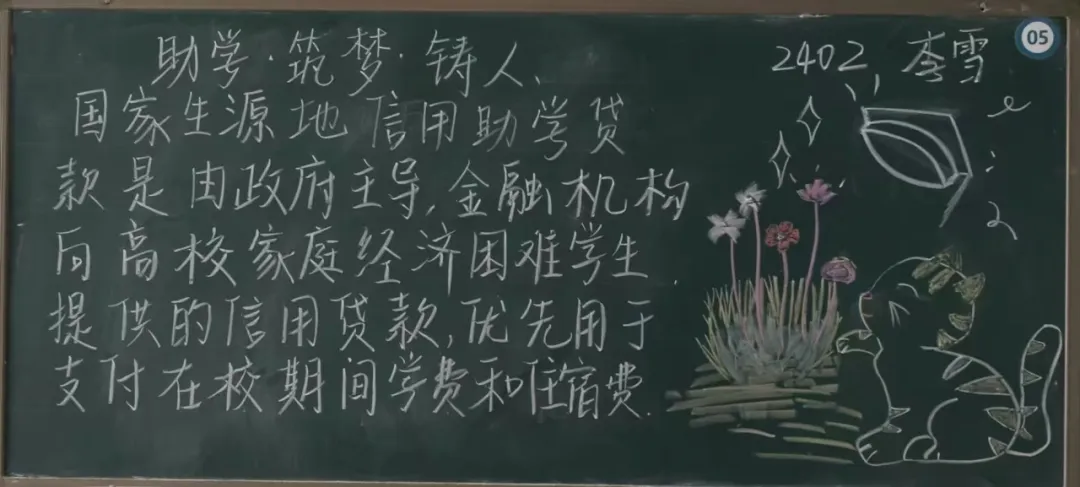 助学·筑梦·铸人、
2402, 李雪
05
国家生源地信用助学贷
款是由政府主导,金融机构
向高校家庭经济困难学生
提供的信用贷款,优先用于
支付在校期间学费和住宿费.